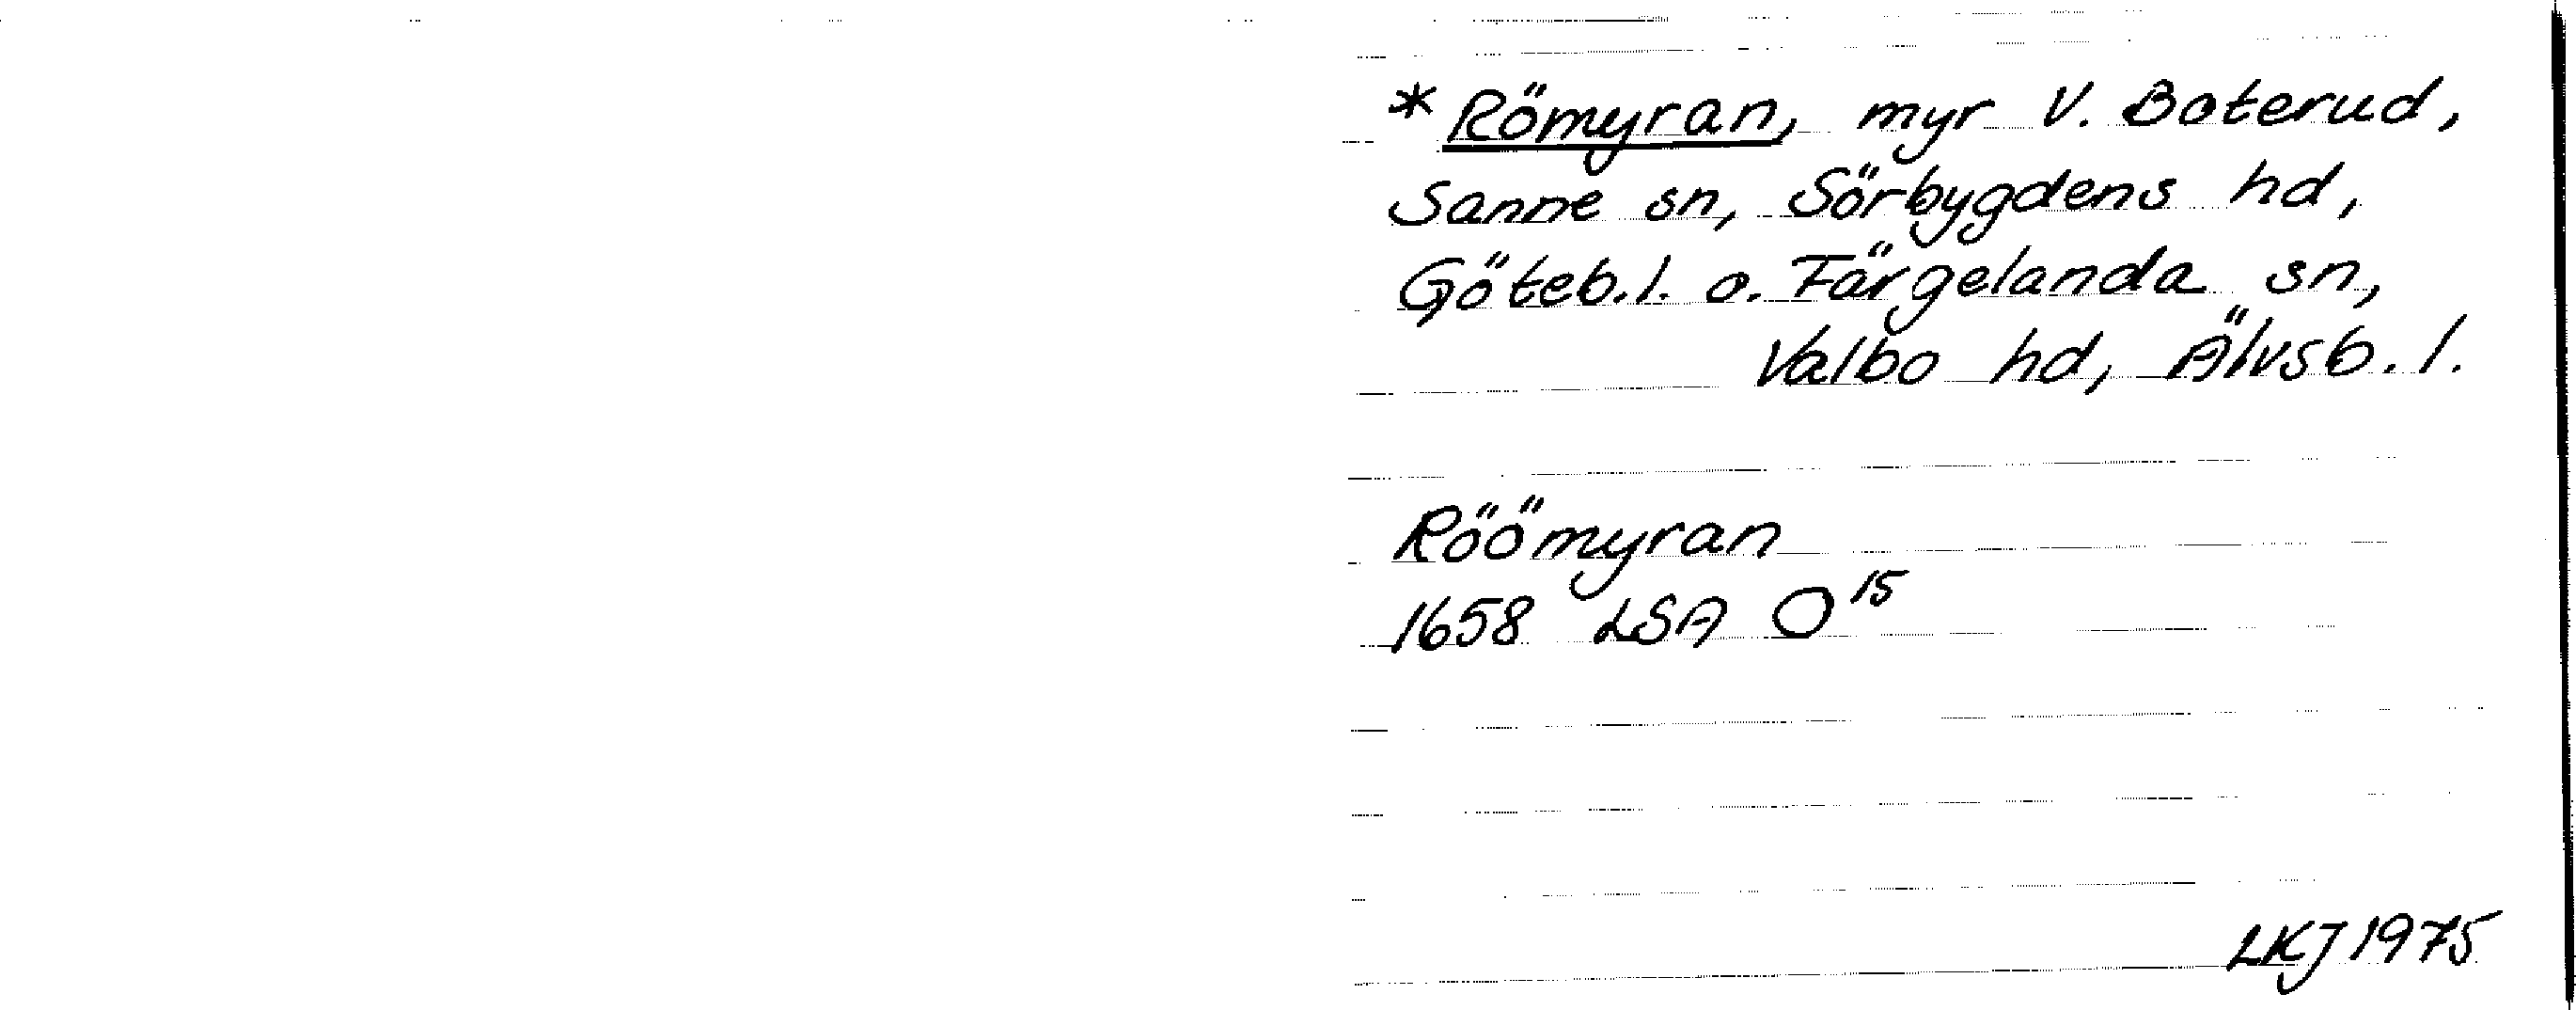 * Römyran, myr V. Boterud,
Sanne sn, Sörbygdens hd,
Göteb.l. o. Färgelanda sn,
Valbo hd, Älvsb.l.
Röömyran
1658 LSA O 15
LKJ 1975